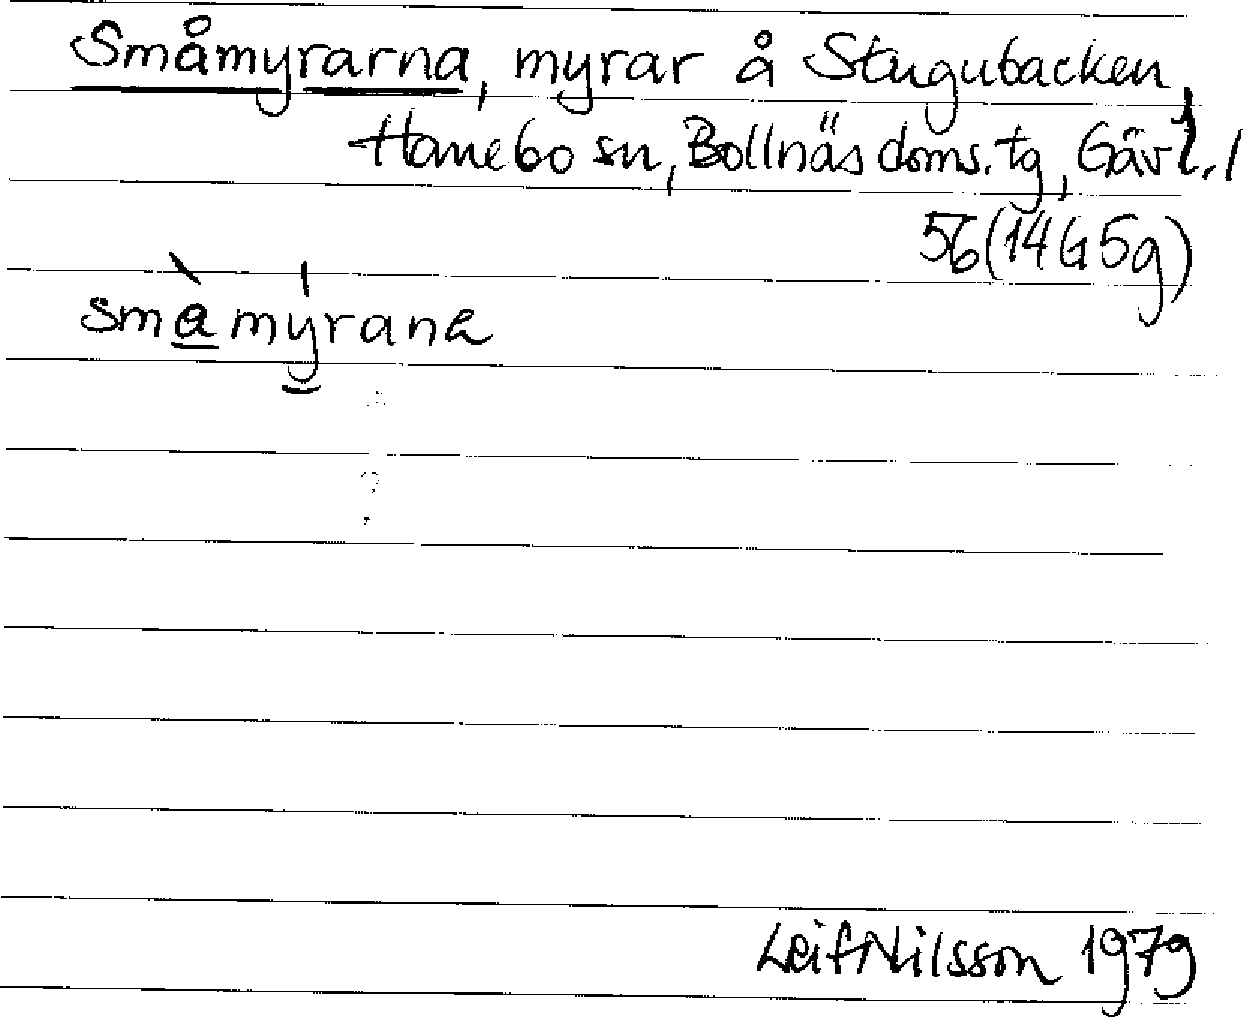 Småmyrarna, myrar å Stugubacken,
Hanebo sn, Bollnäs doms. tg, Gävl. l
56 (14G5g)
småmyrana
Leif Nilsson 1979